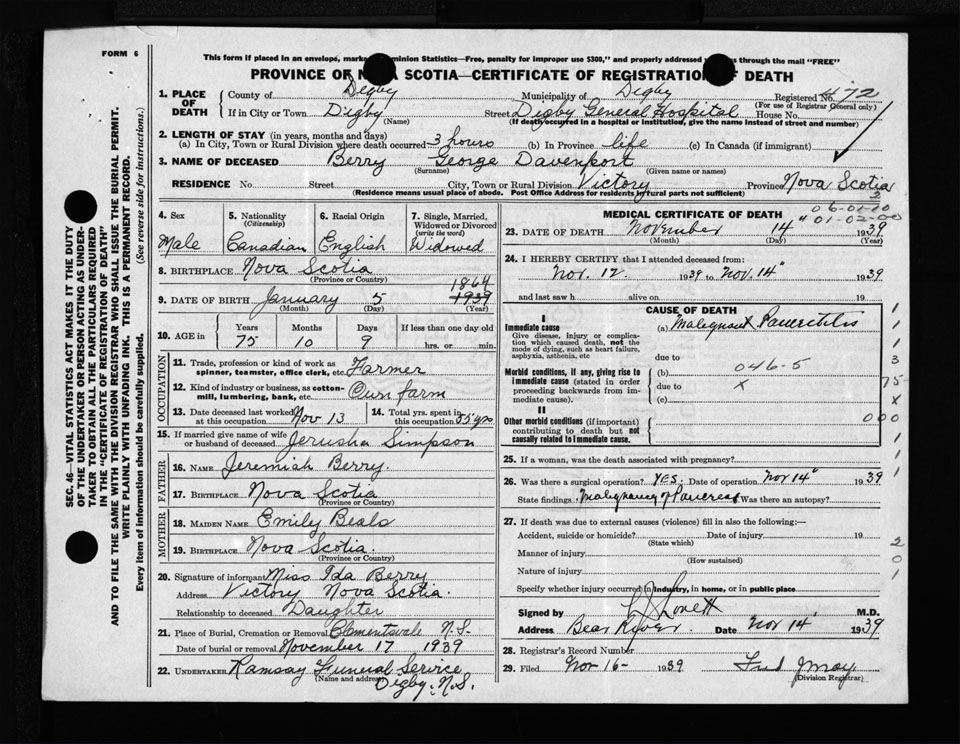 FORM 6
This form if placed in an envelope, marked Dominion Statistics—Free, penalty for improper use $300," and properly addressed passes through the mail "FREE"
PROVINCE OF NOVA SCOTIA—CERTIFICATE OF REGISTRATION OF DEATH
1. PLACE OF DEATH County of Digby Municipality of Digby Registered No. 472
(For use of Registrar General only)
If in City or Town Digby (Name) Street Digby General Hospital House No.
(If death occurred in a hospital or institution, give the name instead of street and number)
2. LENGTH OF STAY (in years, months and days)
(a) In City, Town or Rural Division where death occurred 3 hours (b) In Province life (c) In Canada (if immigrant)
3. NAME OF DECEASED Berry George Davenport
(Surname) (Given name or names)
RESIDENCE No. Street City, Town or Rural Division Victory Province Nova Scotia
(Residence means usual place of abode. Post Office Address for residents in rural parts not sufficient)
SEC. 46—VITAL STATISTICS ACT MAKES IT THE DUTY
OF THE UNDERTAKER OR PERSON ACTING AS UNDER-
TAKER TO OBTAIN ALL THE PARTICULARS REQUIRED
IN THE "CERTIFICATE OF REGISTRATION OF DEATH"
AND TO FILE THE SAME WITH THE DIVISION REGISTRAR WHO SHALL ISSUE THE BURIAL PERMIT.
WRITE PLAINLY WITH UNFADING INK. THIS IS A PERMANENT RECORD.
Every item of information should be carefully supplied. (See reverse side for instructions.)
4. Sex Male
5. Nationality (Citizenship) Canadian
6. Racial Origin English
7. Single, Married, Widowed or Divorced (write the word) Widowed
8. BIRTHPLACE Nova Scotia
(Province or Country)
1864
9. DATE OF BIRTH January 5 1939
(Month) (Day) (Year)
10. AGE in Years Months Days If less than one day
75 10 9 hrs. or min.
OCCUPATION
11. Trade, profession or kind of work as spinner, teamster, office clerk, etc. Farmer
12. Kind of industry or business, as cotton-mill, lumbering, bank, etc. Own farm
13. Date deceased last worked at this occupation Nov 13
14. Total yrs. spent in this occupation 55 yrs
15. If married give name of wife or husband of deceased Jerusha Simpson
FATHER
16. NAME Jeremiah Berry
17. BIRTHPLACE Nova Scotia
(Province or Country)
MOTHER
18. MAIDEN NAME Emily Beals
19. BIRTHPLACE Nova Scotia.
(Province or Country)
20. Signature of informant Miss Ida Berry
Address Victory Nova Scotia.
Relationship to deceased Daughter
21. Place of Burial, Cremation or Removal Clementsvale N.S.
Date of burial or removal November 17 1939
22. UNDERTAKER Ramsay Funeral Service
(Name and address) Digby, N.S.
MEDICAL CERTIFICATE OF DEATH
06-01-10
" 01-02-00
23. DATE OF DEATH November 14 1939
(Month) (Day) (Year)
24. I HEREBY CERTIFY that I attended deceased from:
Nov. 12 1939 to Nov. 14" 1939
and last saw h alive on 19
CAUSE OF DEATH
I
Immediate cause
Give disease, injury or complication which caused death, not the mode of dying, such as heart failure, asphyxia, asthenia, etc
(a) Malignant Pancretitis
due to
Morbid conditions, if any, giving rise to immediate cause (stated in order proceeding backwards from immediate cause).
(b) 046-5
due to X
(c)
II
Other morbid conditions (if important) contributing to death but not causally related to immediate cause.
1
1
1
3
75
X
000
1
1
25. If a woman, was the death associated with pregnancy?
26. Was there a surgical operation? YES. Date of operation Nov 14" 1939
State findings Malignancy of Pancreas Was there an autopsy?
27. If death was due to external causes (violence) fill in also the following:—
Accident, suicide or homicide? Date of injury 19
(State which)
Manner of injury
(How sustained)
Nature of injury
Specify whether injury occurred in industry, in home, or in public place
2
0
1
Signed by Lovett M.D.
Address Bear River Date Nov 14" 1939
28. Registrar's Record Number
29. Filed Nov 16- 1939
(Division Registrar)